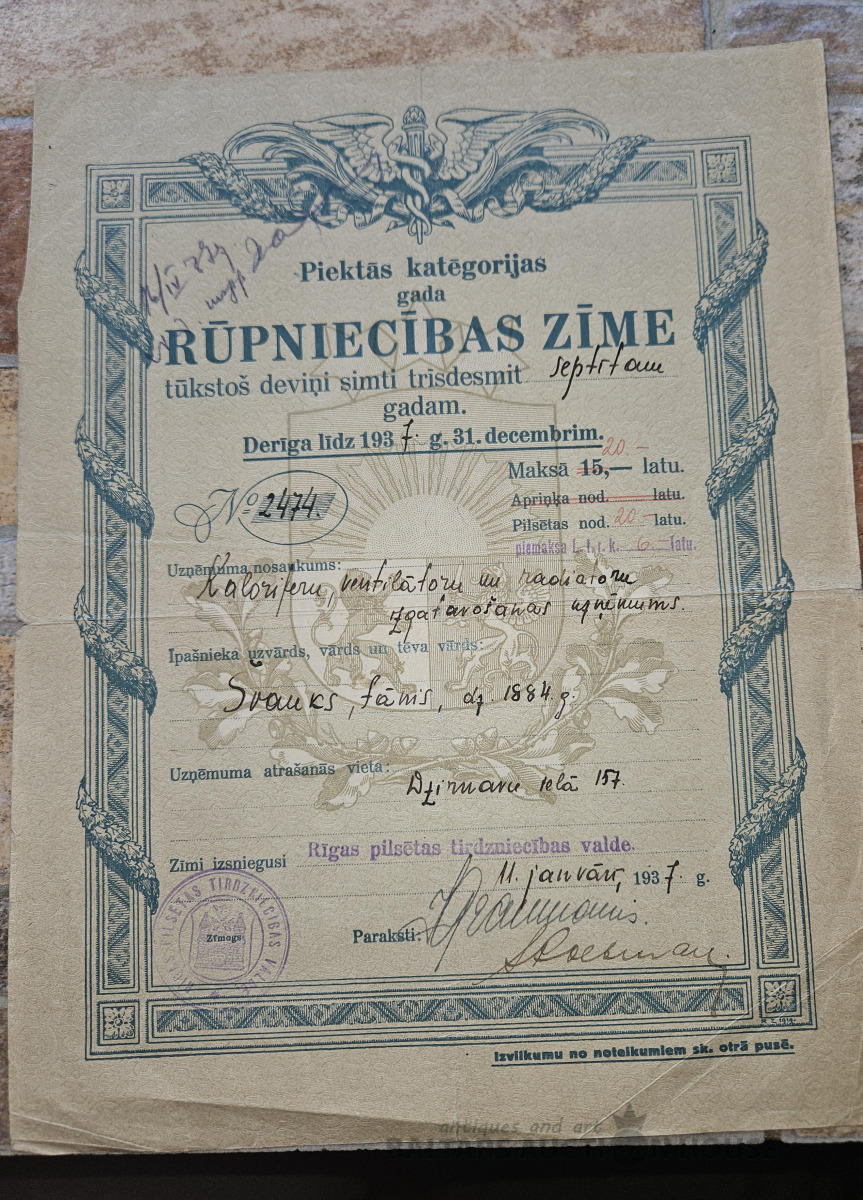 16/IV 37g
Piektās katēgorijas
gada
RŪPNIECĪBAS ZĪME
tūkstoš deviņi simti trīsdesmit septītam
gadam.
Derīga līdz 1937. g. 31. decembrim.
20.-
Maksā 15,— latu.
Apriņķa nod. latu.
№ 2474.
Pilsētas nod. 20.- latu.
piemaksa L. t. r. k. 6.- latu.
Uzņēmuma nosaukums:
Kaloriferu, ventilātoru un radiatoru
izgatavošanas uzņēmums.
Īpašnieka uzvārds, vārds un tēva vārds:
Švauks, Jānis, dz. 1884. g.
Uzņēmuma atrašanās vieta:
Dzirnavu ielā 157.
Zīmi izsniegusi Rīgas pilsētas tirdzniecības valde.
11. janvārī, 1937. g.
RĪGAS PILSĒTAS TIRDZNIECĪBAS VALDE
Zīmogs
Paraksti:
Izvilkumu no noteikumiem sk. otrā pusē.
antiques and art